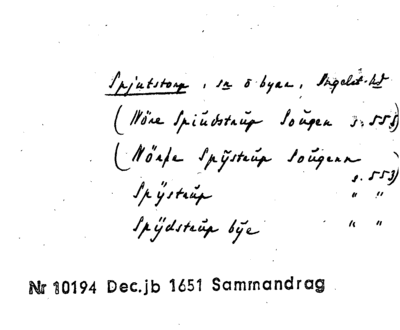 Spjutstorp, sn o byar, Ingelst. hd
(Nöre Spiudstrup Sougen s. 558)
(Nörre Spÿstrup Sougenn s. 553)
Spÿstrup " "
Spÿdstrup bÿe " "
Nr 10194 Dec.jb 1651 Sammandrag